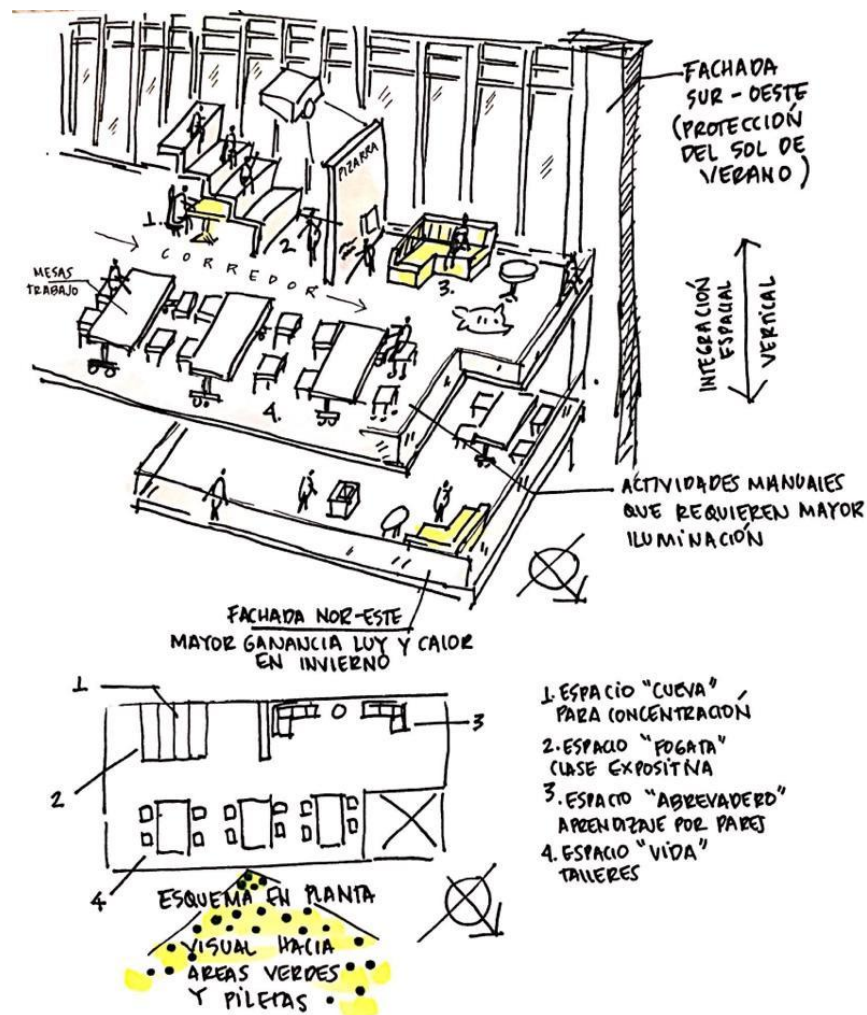 FACHADA
SUR - OESTE
(PROTECCIÓN
DEL SOL DE
VERANO)
PIZARRA
1.
2
3.
CORREDOR
MESAS
TRABAJO
4.
INTEGRACIÓN
ESPACIAL
VERTICAL
ACTIVIDADES MANUALES
QUE REQUIEREN MAYOR
ILUMINACIÓN
FACHADA NOR-ESTE
MAYOR GANANCIA LUY Y CALOR
EN INVIERNO
1
2
3
4
ESQUEMA EN PLANTA
VISUAL HACIA
AREAS VERDES
Y PILETAS
1. ESPACIO "CUEVA"
PARA CONCENTRACIÓN
2. ESPACIO "FOGATA"
CLASE EXPOSITIVA
3. ESPACIO "ABREVADERO"
APRENDIZAJE POR PARES
4. ESPACIO "VIDA"
TALLERES